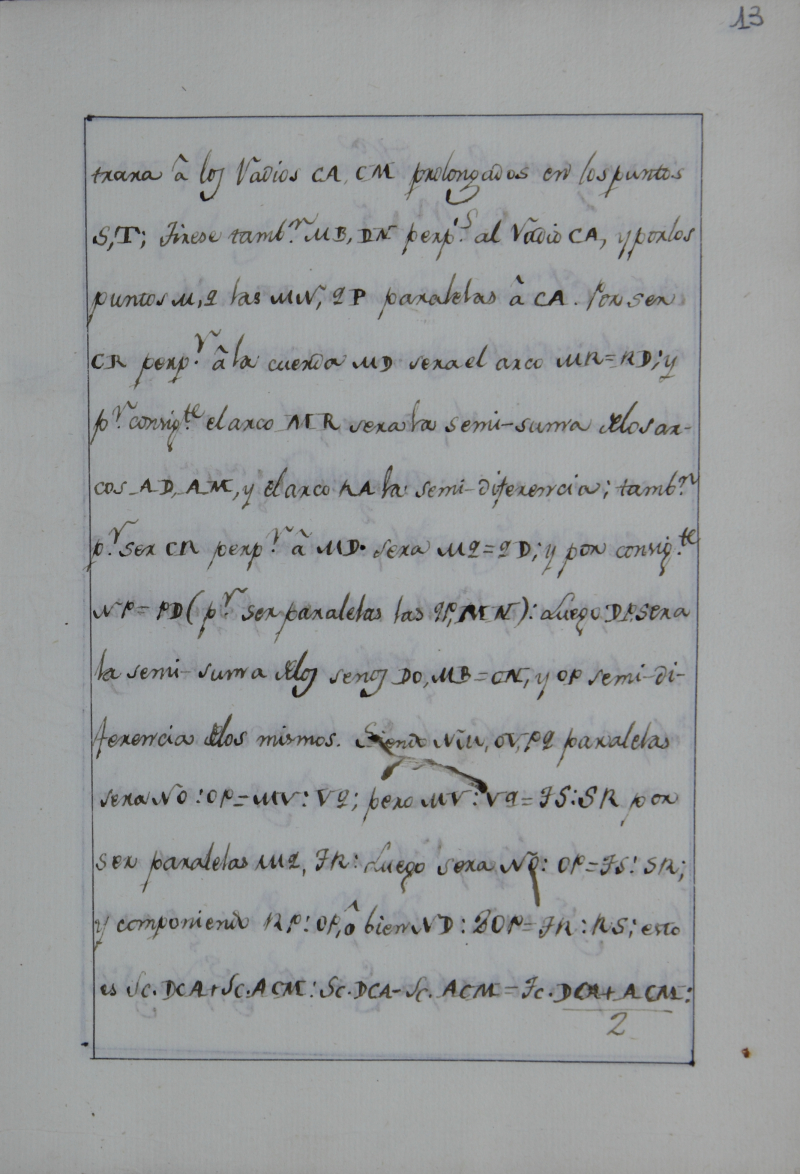 13
trara â los Radios CA, CM prolongados en los puntos
S, T; Tirese tamb.n MB, DN perp.s al Radio CA, y por los
puntos M, Q las MN, QP paralelas â CA. Por ser
CR perp.r â la cuerda MD sera el arco MR=RD; y
p.r consig.te el arco MR sera la semi-suma de los ar-
cos AD, AM, y el arco RA la semi-diferencia; tamb.n
p.r ser CR perp.r â MD. sera MQ=QD; y por consig.te
NP=PD (p.r ser paralelas las QP, MN): Luego DP sera
la semi-suma de los senos DO, MB=ON, y OP semi-di-
ferencia de los mismos. Siendo NM, OV, PQ paralelas
sera NO:OP=MV:VQ; pero MV:VQ=TS:SR por
ser paralelas MQ, TR: Luego sera NO:OP=TS:SR;
y componiendo NP:OP, ô bien ND:2OP=TR:RS; esto
es Sc.DCA+Sc.ACM:Sc.DCA-Sc.ACM=Tc.DCA+ACM:
2